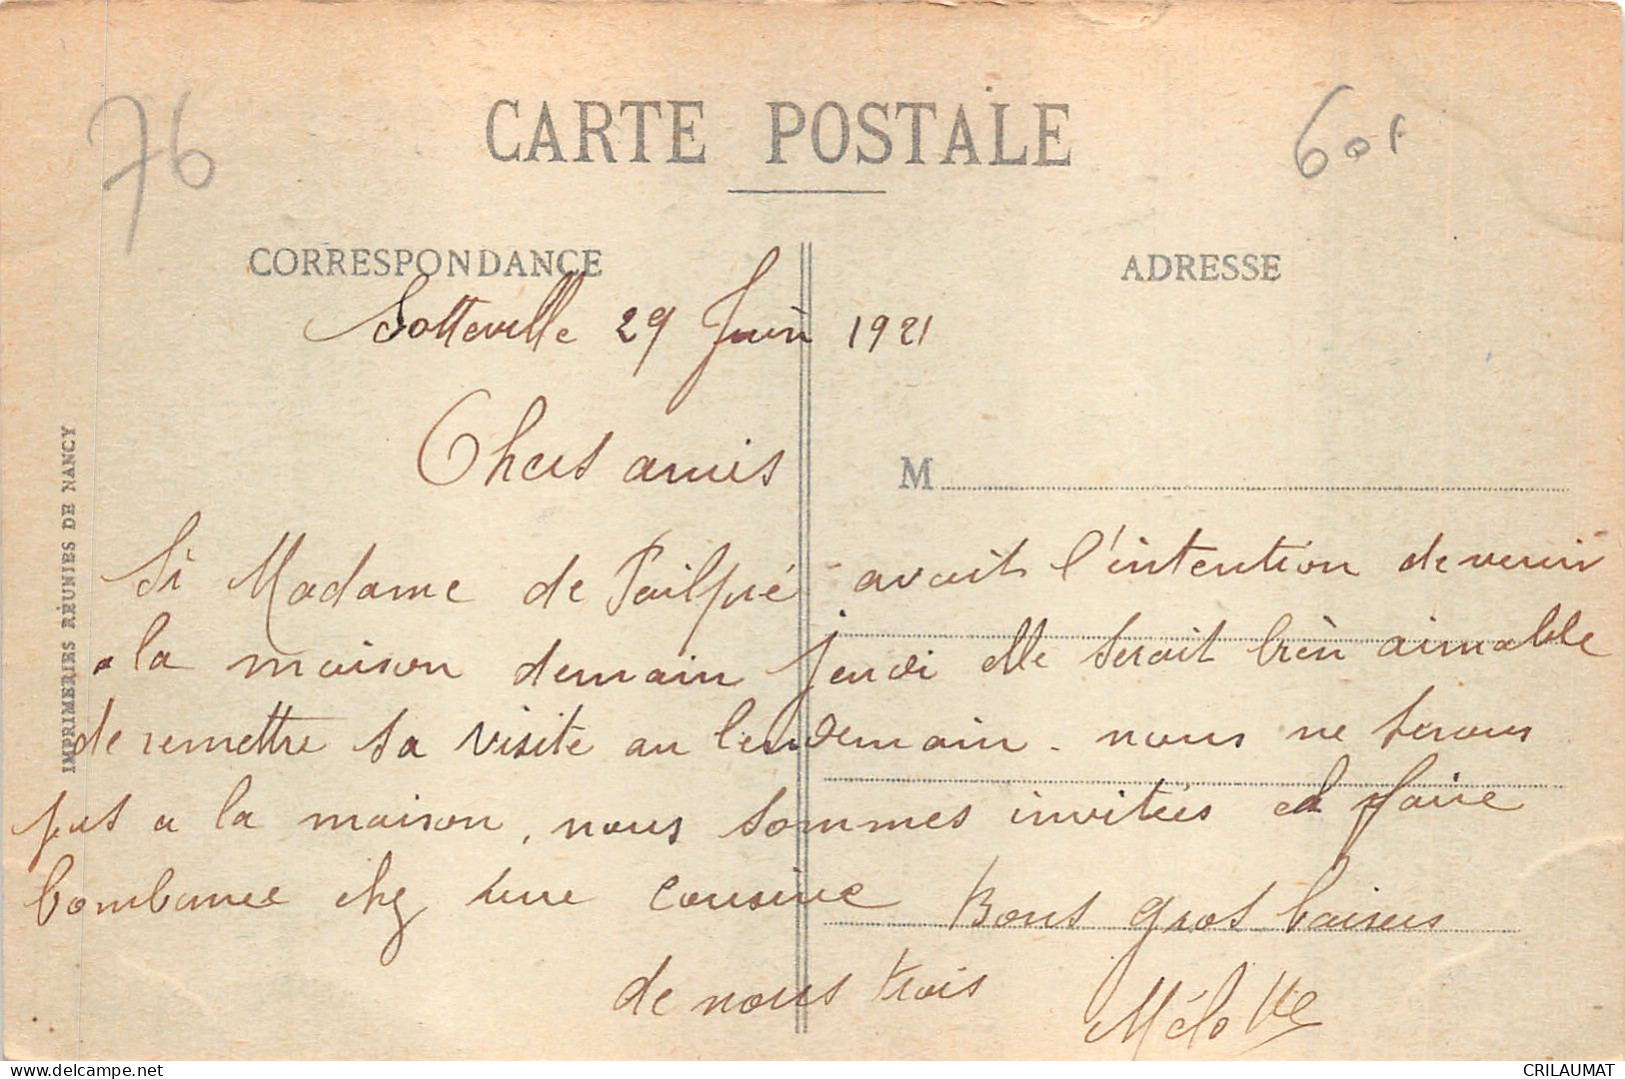 76
CARTE POSTALE
60f
CORRESPONDANCE
ADRESSE
Sotteville 29 Juin 1921
Chers amis
M
Si Madame de avait l'intention de venir
a la maison demain jeudi elle serait bien aimable
de remettre sa visite au lendemain. nous ne serons
pas a la maison, nous sommes invitées a faire
bombance chez une cousine Bons gros baisers
de nous trois
Mélotte
IMPRIMERIES RÉUNIES DE NANCY
delcampe.net
CRILAUMAT